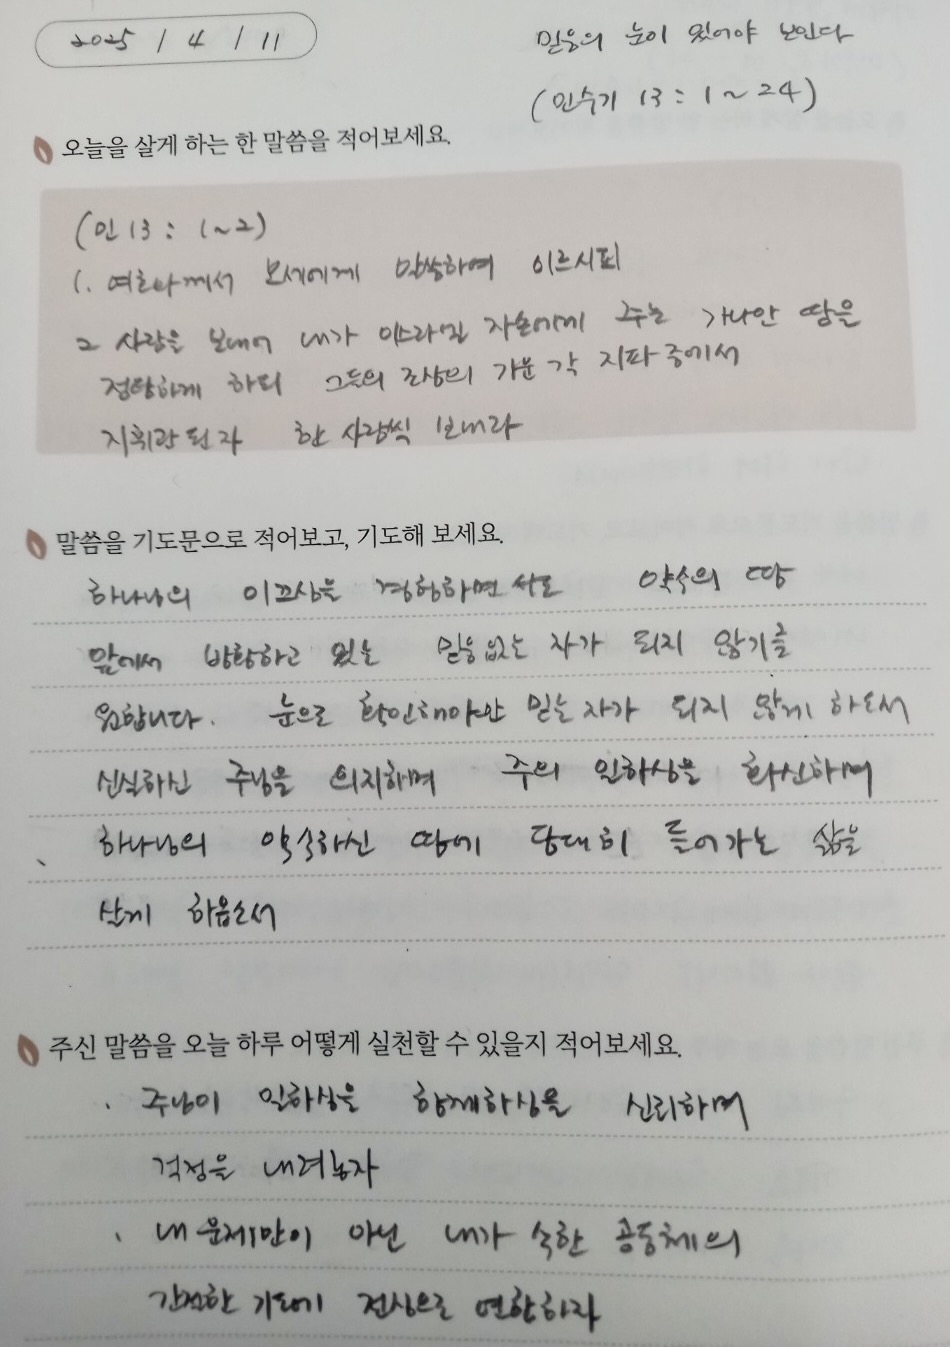 2025 / 4 / 11
믿음의 눈이 있어야 보인다
(민수기 13 : 1 ~ 24)
오늘을 살게 하는 한 말씀을 적어보세요.
(민 13 : 1~2)
1. 여호와께서 모세에게 말씀하여 이르시되
2 사람을 보내어 내가 이스라엘 자손에게 주는 가나안 땅을
정탐하게 하되 그들의 조상의 가문 각 지파 중에서
지휘관 된 자 한 사람씩 보내라
말씀을 기도문으로 적어보고, 기도해 보세요.
하나님의 이끄심을 경험하면서도 약속의 땅
앞에서 방황하고 있는 믿음없는 자가 되지 않기를
원합니다. 눈으로 확인해야만 믿는 자가 되지 않게 하소서
신실하신 주님을 의지하며 주의 일하심을 확신하며
하나님의 약속하신 땅에 담대히 들어가는 삶을
살게 하옵소서
주신 말씀을 오늘 하루 어떻게 실천할 수 있을지 적어보세요.
. 주님이 일하심을 함께하심을 신뢰하며
걱정을 내려놓자
. 내 문제만이 아닌 내가 속한 공동체의
간절한 기도에 전심으로 연합하자